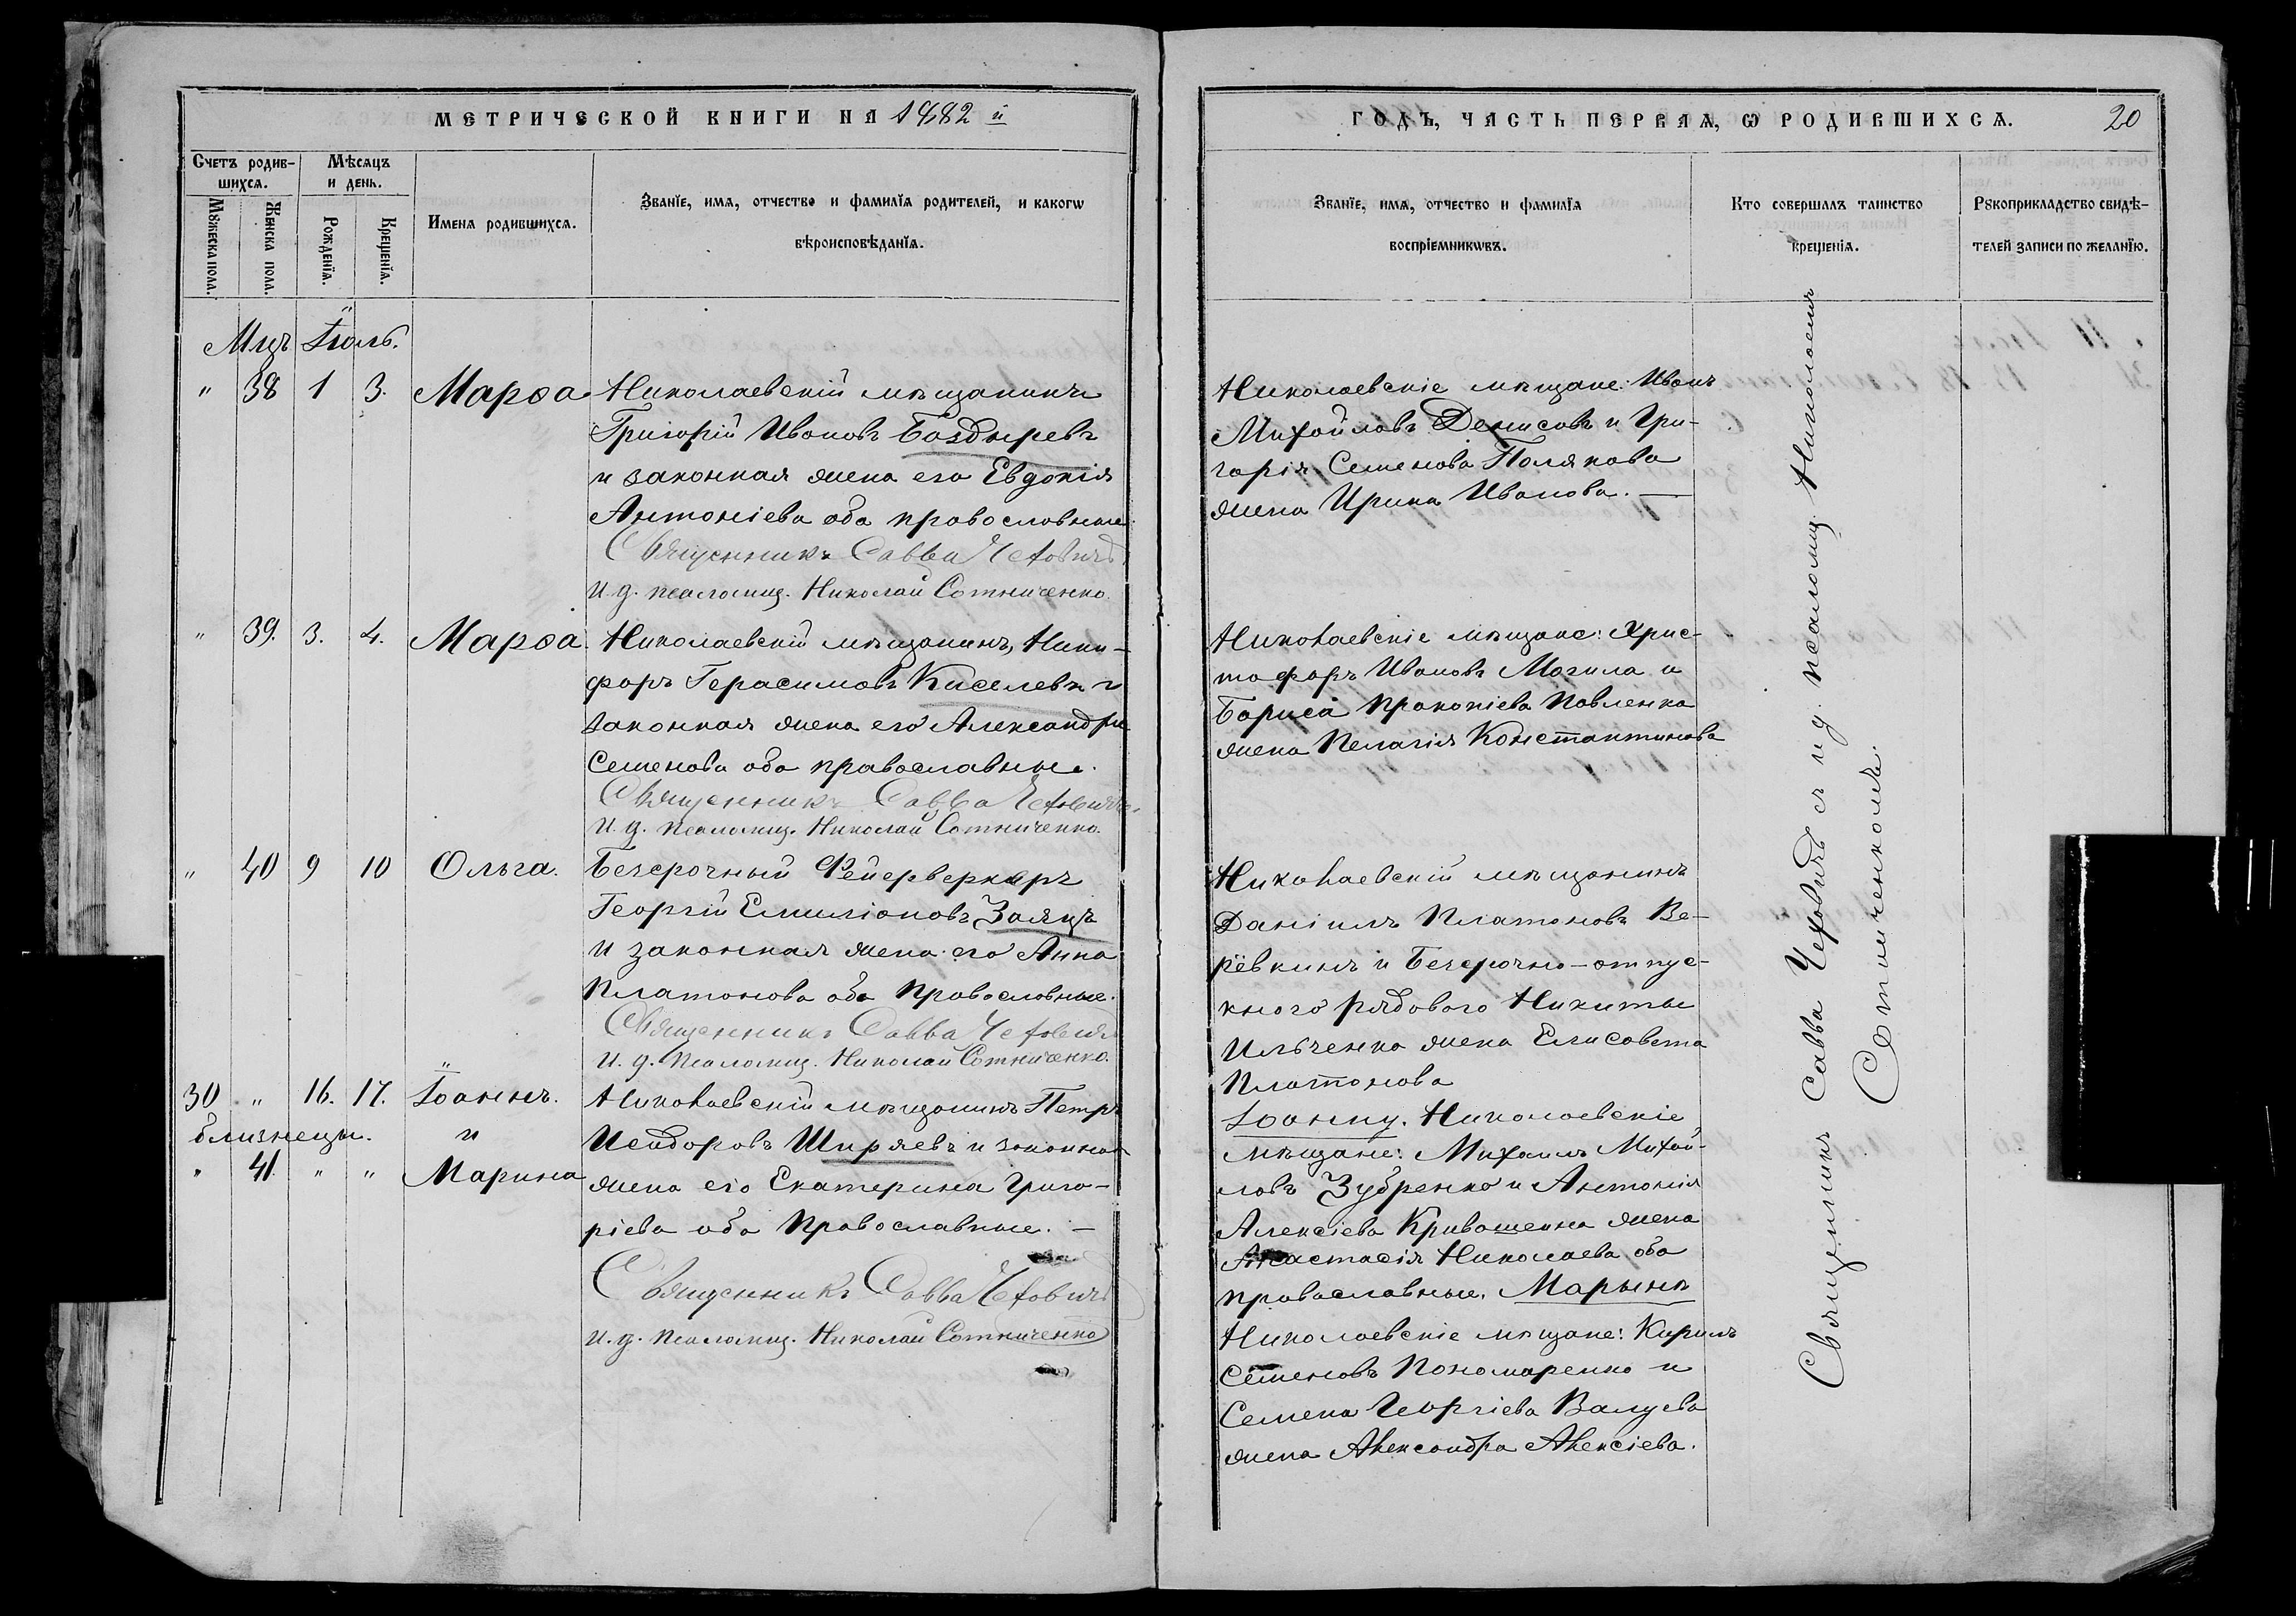 МЕТРИЧЕСКОЙ КНИГИ НА 1882 й
Счетъ родив-
шихся.
Мѣсяцъ
и день.
Мꙋжеска пола.
Женска пола.
Рожденїя.
Крещенїя.
Имена родившихся.
Званїе, имя, отчество и фамилїя родителей, и какогѡ
вѣроисповѣданїя.
Мцъ Іюль.
" 38 1 3. Марѳа Николаевскій мѣщанинъ
Григорій Ивановъ Боздыревъ
и законная жена его Евдокія
Антоніева оба православные.
Священникъ Савва Чеховичъ
и. д. псаломщ. Николай Сотниченко.
" 39. 3. 4. Марѳа. Николаевскій мѣщанинъ, Ники-
форъ Герасимовъ Киселевъ и
законная жена его Александра
Семенова оба православные.
Священникъ Савва Чеховичъ
и. д. псаломщ. Николай Сотниченко.
" 40 9 10 Ольга. Безсрочный Фейерверкеръ
Георгій Емиліановъ Заяцъ
и законная жена его Анна
Платонова оба православные.
Священникъ Савва Чеховичъ
и. д. псаломщ. Николай Сотниченко.
30 " 16. 17. Іоаннъ. Николаевскій мѣщанинъ Петръ
близнецы. и Исидоровъ Ширяевъ и законная
" 41. " " Марина жена его Екатерина Григо-
ріева оба православные. —
Священникъ Савва Чеховичъ
и. д. псаломщ. Николай Сотниченко
ГОДЪ, ЧАСТЬ ПЕРВАЯ, Ѡ РОДИВШИХСЯ. 20
Званїе, имя, отчество и фамилїя
воспрїемникѡвъ.
Кто совершалъ таинство
крещенїя.
Рꙋкоприкладство свидѣ-
телей записи по желанїю.
Николаевскіе мѣщане: Иванъ
Михайловъ Денисовъ и Гри-
горія Семенова Полякова
жена Ирина Иванова. —
Николаевскіе мѣщане: Хрис-
тофоръ Ивановъ Могила и
Бориса Прокопіева Павленка
жена Пелагія Константинова
Николаевскій мѣщанинъ
Даніилъ Платоновъ Ве-
рёвкинъ и Безсрочно-отпус-
кного рядового Никиты
Ильченка жена Елисавета
Платонова
Іоанну. Николаевскіе
мѣщане: Михаилъ Михай-
ловъ Зубренко и Антонія
Алексіева Кривошеина жена
Анастасія Николаева оба
православные. Марынѣ
Николаевскіе мѣщане: Кирилъ
Семеновъ Пономаренко и
Семена Георгіева Валуева
жена Александра Алексіева.
Священникъ Савва Чеховичъ съ и д. псаломщ. Николаемъ
Сотниченкомъ.